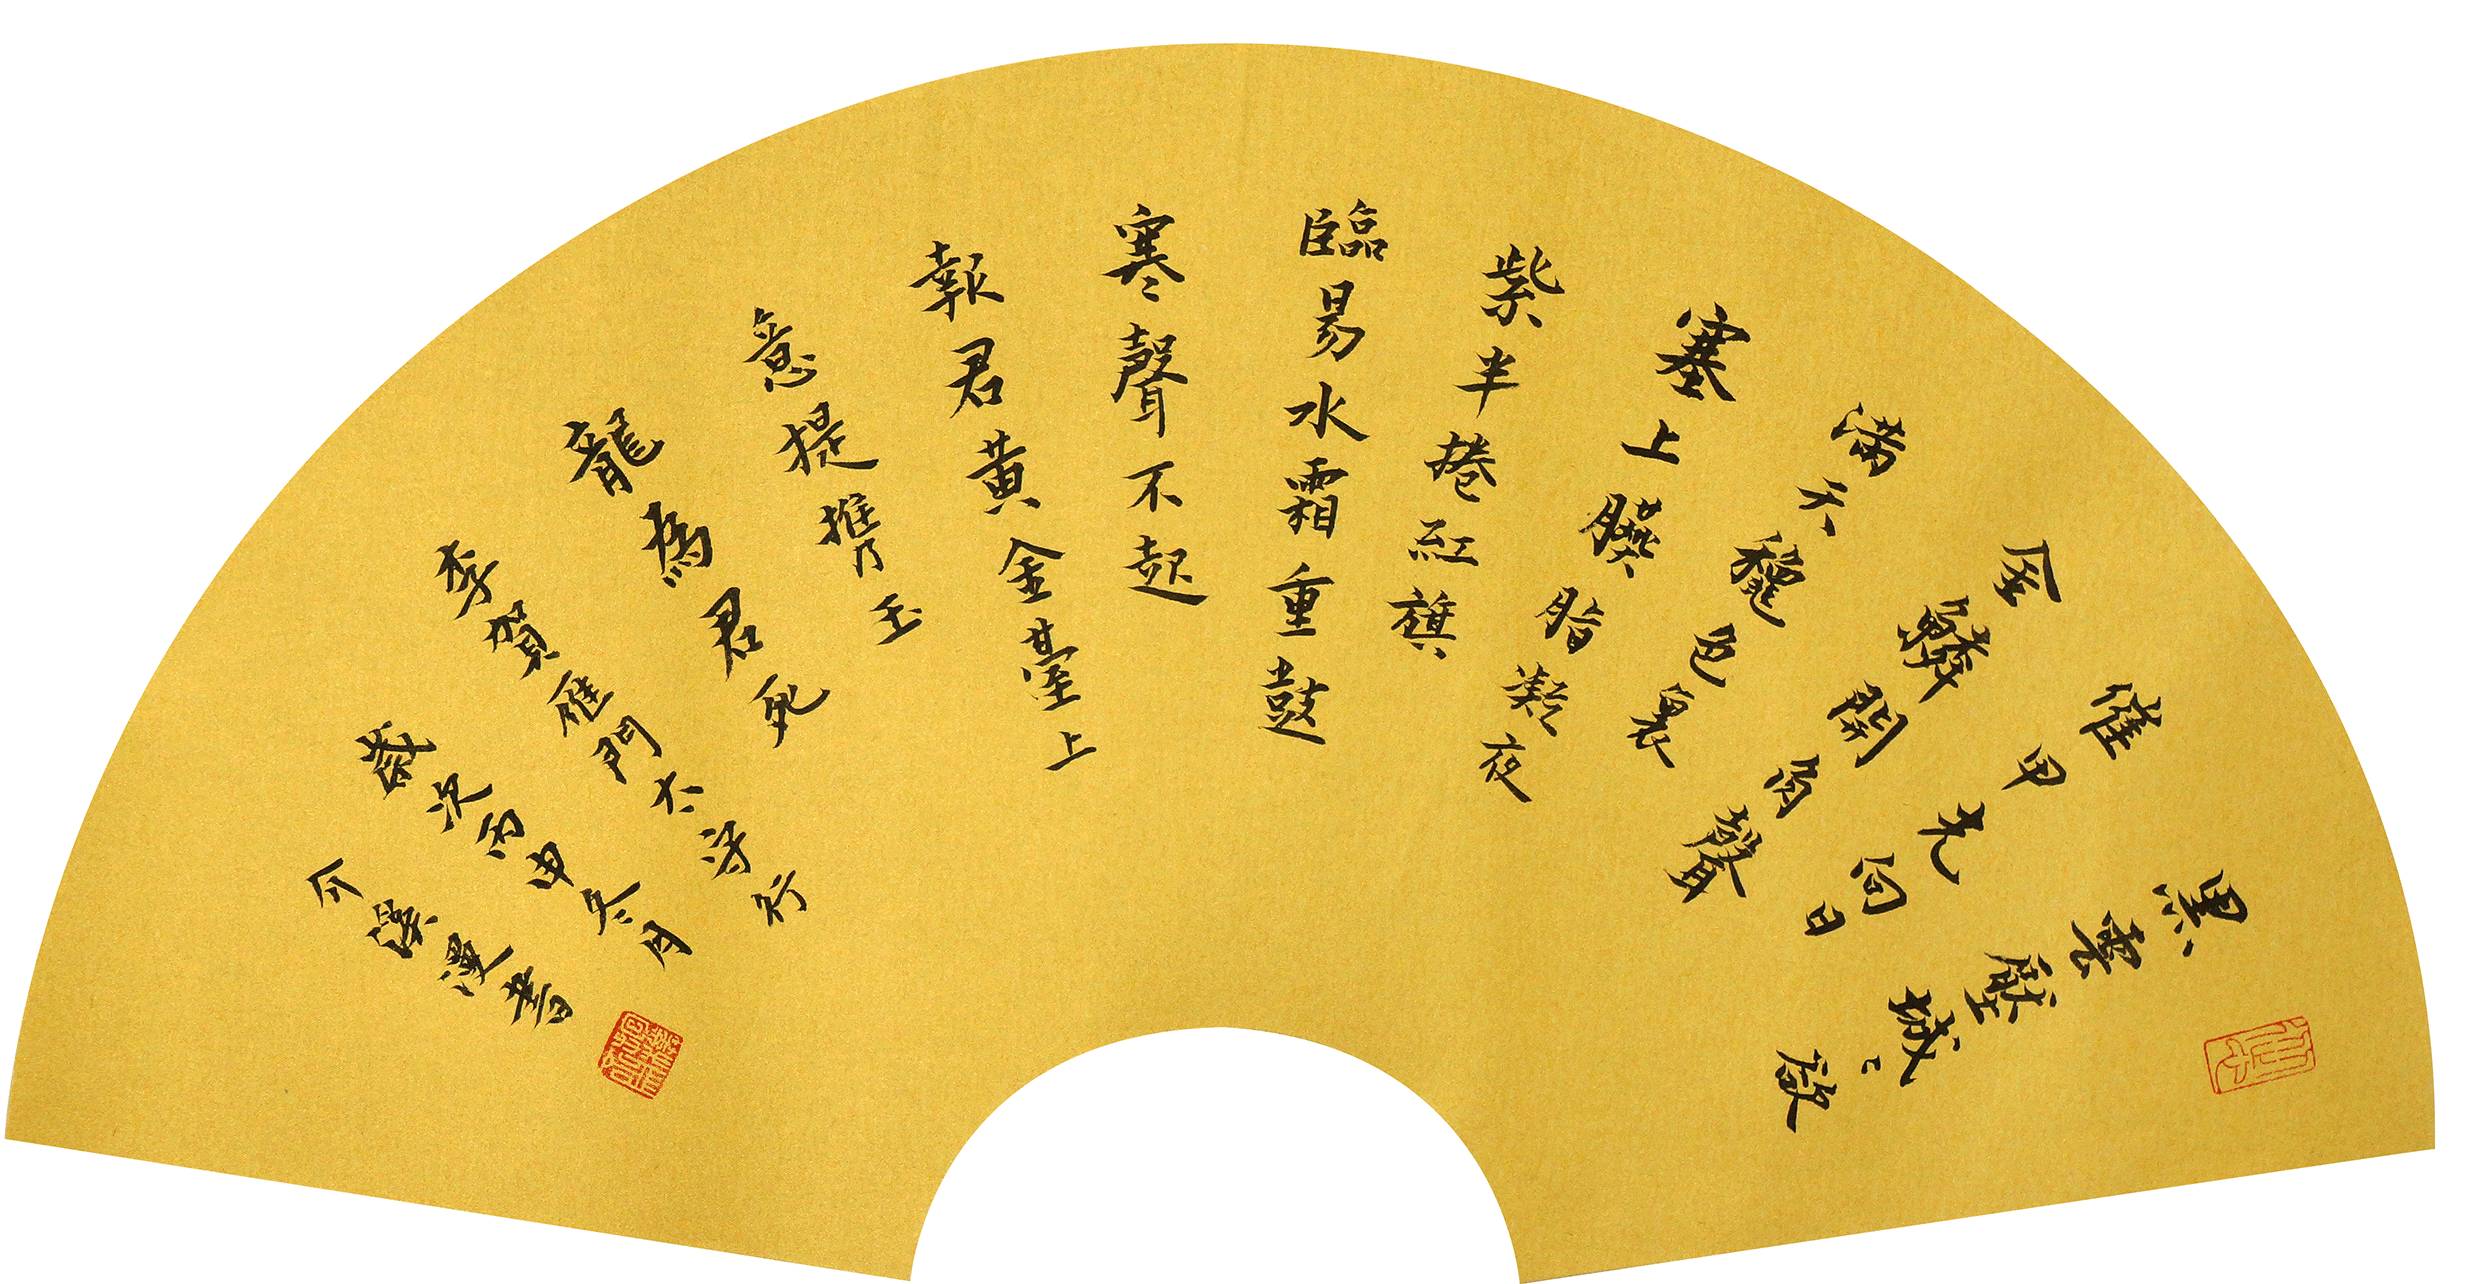 黑雲壓城〻欲
催甲光向日
金鱗開角聲
滿天穐色裏
塞上臙脂凝夜
紫半捲紅旗
臨易水霜重鼓
寒聲不起
報君黃金臺上
意提攜玉
龍為君死
李賀雁門太守行
歲次丙申冬月
介溪書